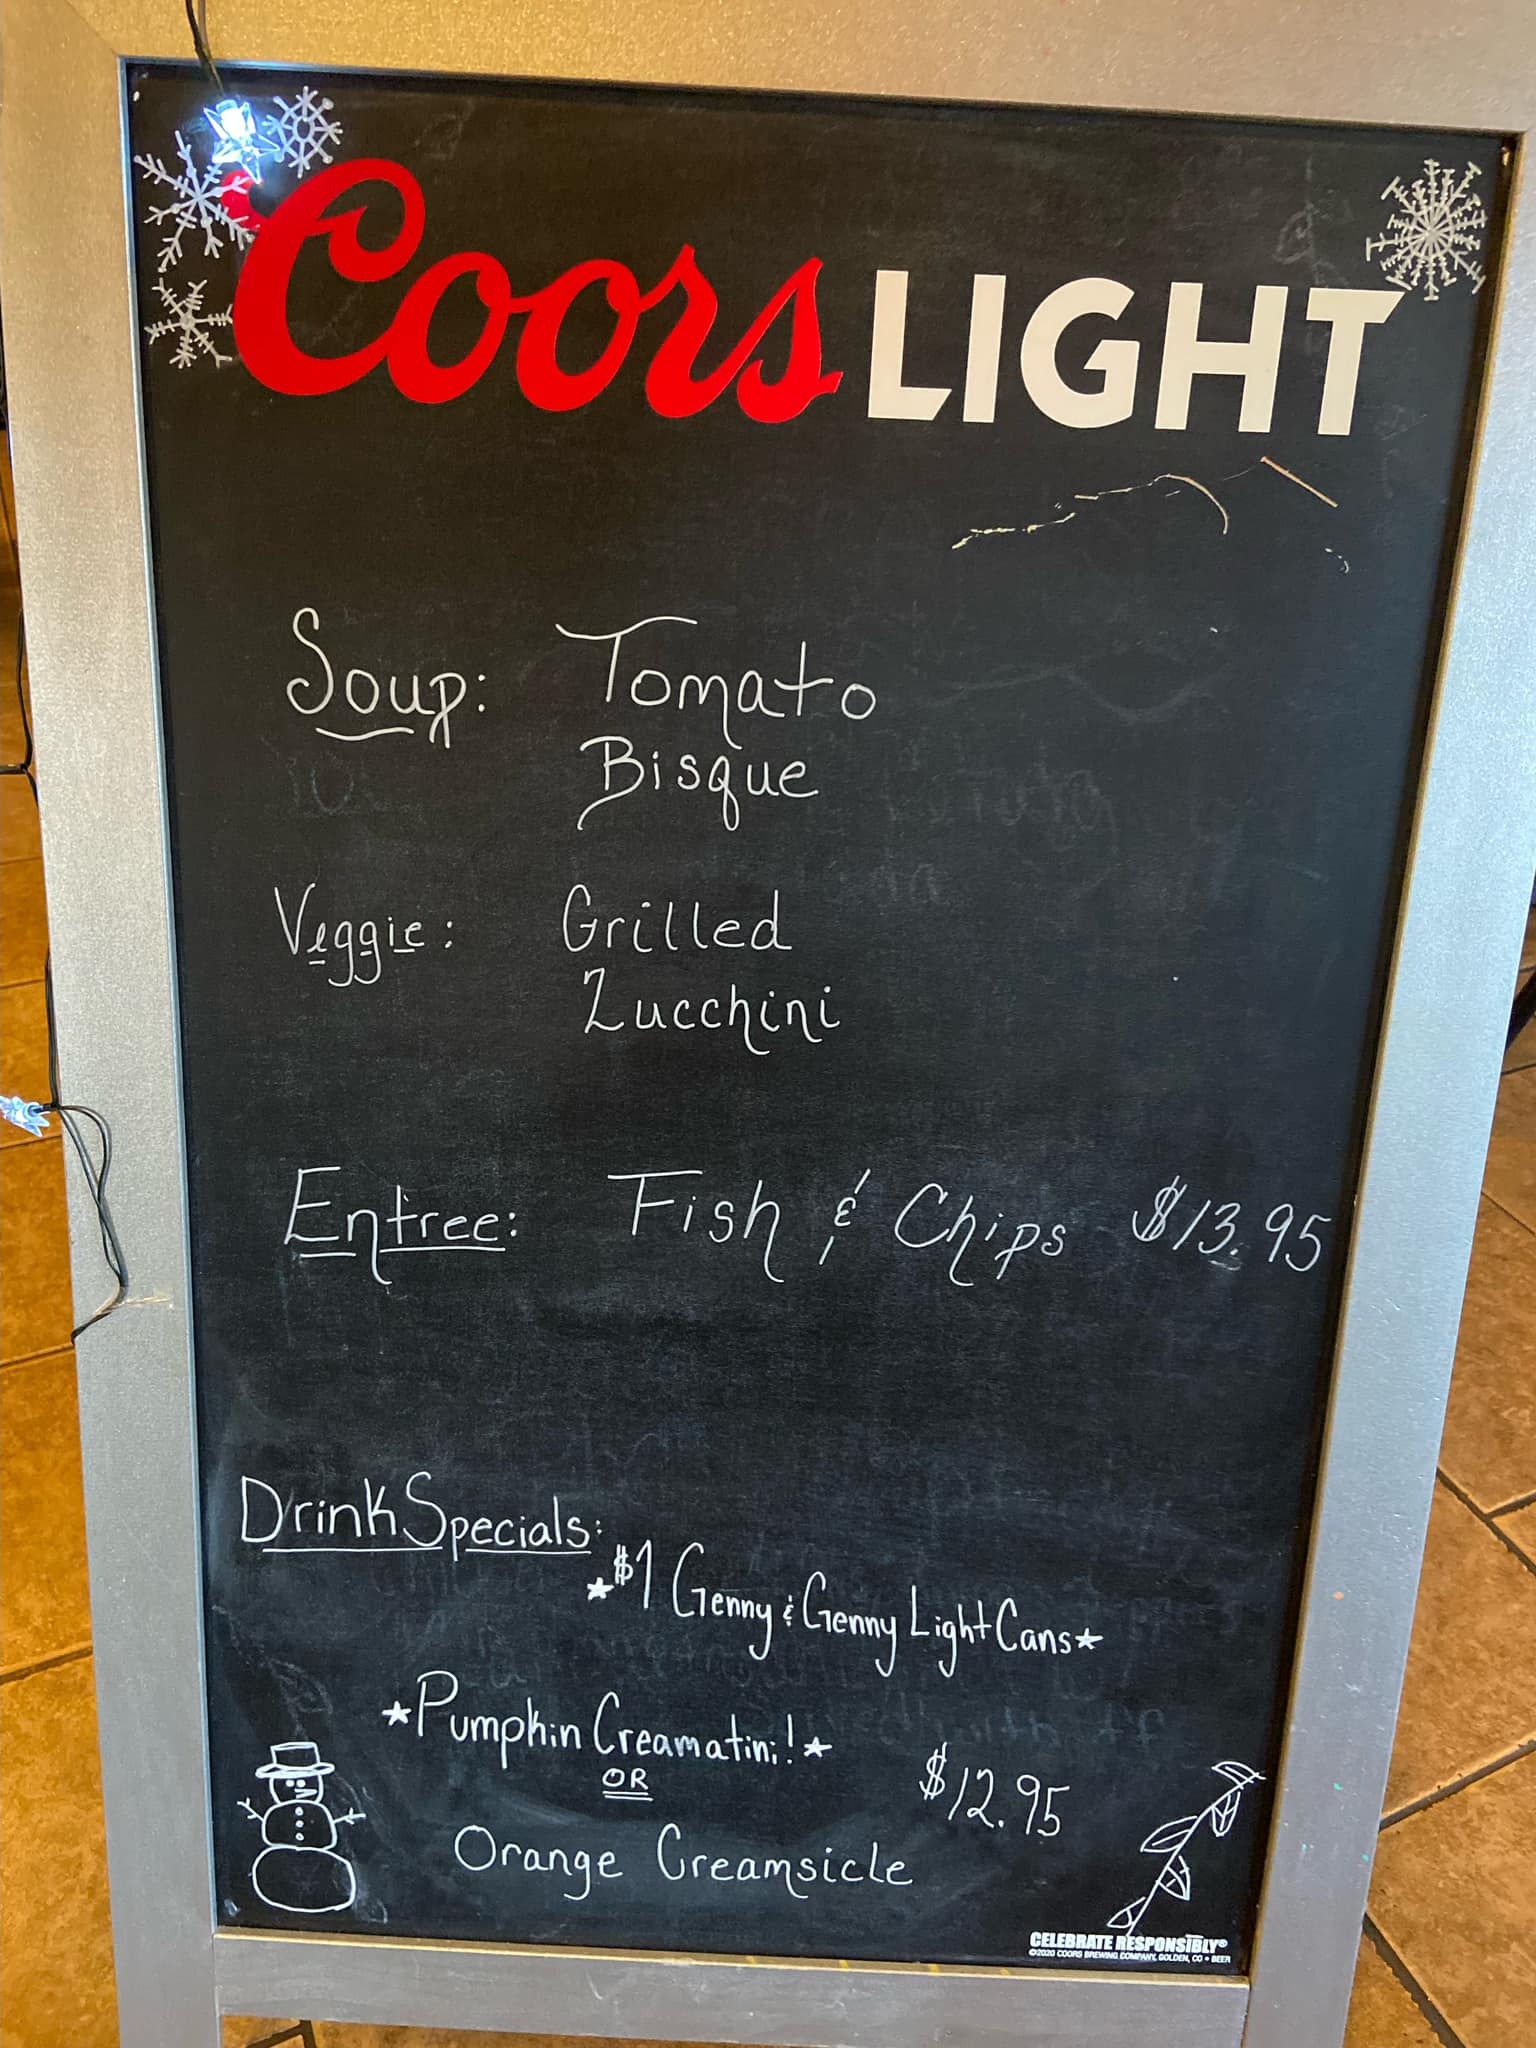 Coors LIGHT
Soup: Tomato
Bisque
Veggie: Grilled
Zucchini
Entree: Fish & Chips $13.95
Drink Specials:
*$1 Genny & Genny Light Cans*
*Pumpkin Creamatini!*
OR
$12.95
Orange Creamsicle
CELEBRATE RESPONSIBLY®
©2020 COORS BREWING COMPANY, GOLDEN, CO • BEER